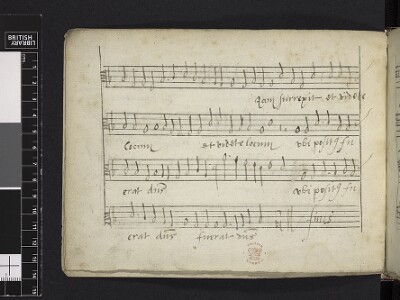 BRITISH
LIBRARY
Jam surrexit et videte
Locum et videte locum ubi posit9 fu
erat dns ubi posit9 fu
finis
erat dns fuerat dns